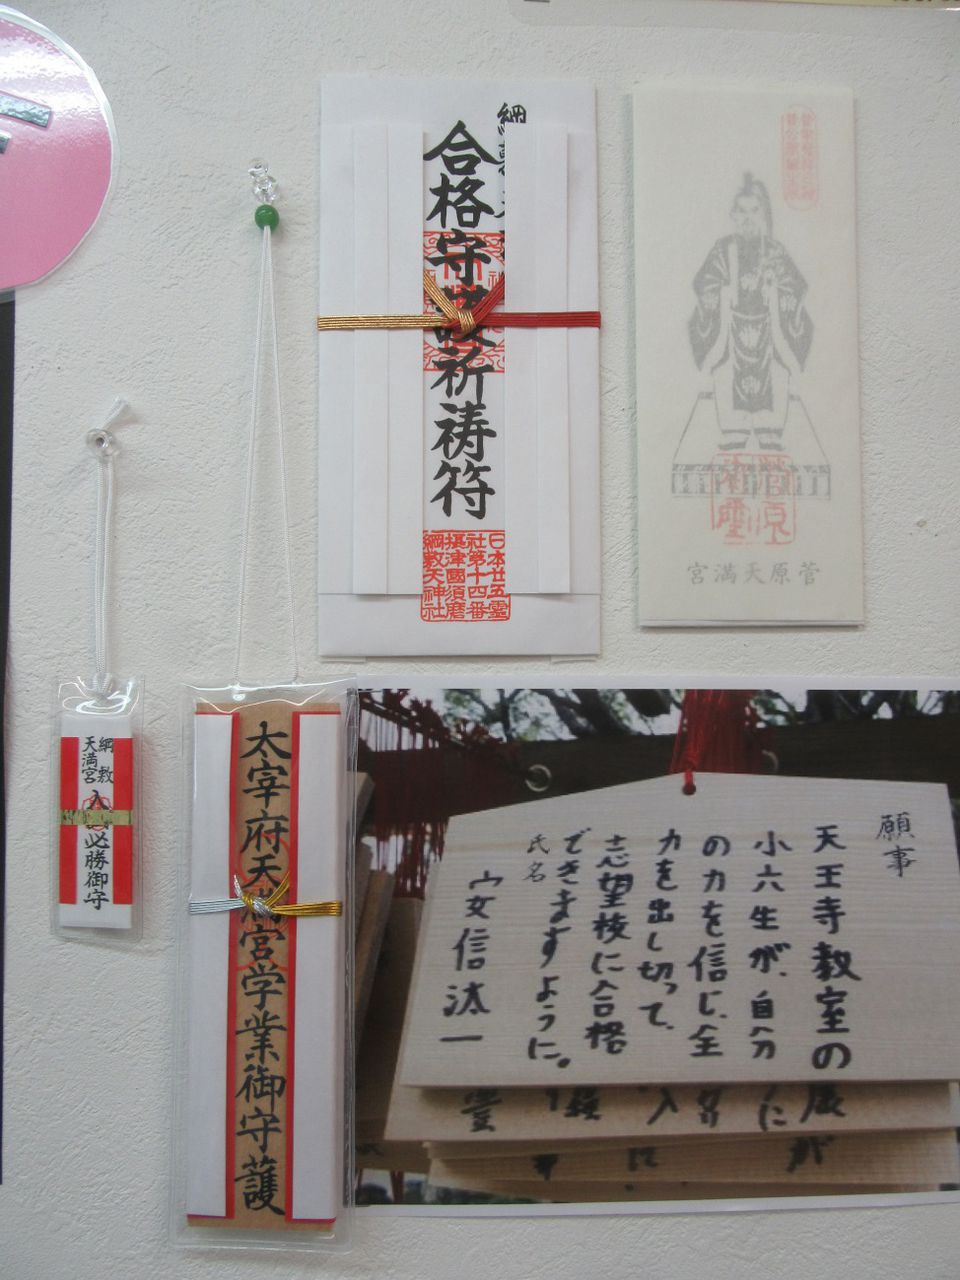 綱敷天
合格守護祈祷符
日本廿五霊
社第十四番
摂津國須磨
綱敷天神社
菅原
菅原天満宮
綱敷
天満宮
入試必勝御守
太宰府天満宮学業御守護
願事
天王寺教室の
小六生が、自分
の力を信じ、全
力を出し切って、
志望校に合格
できますように。
氏名
安信汰一